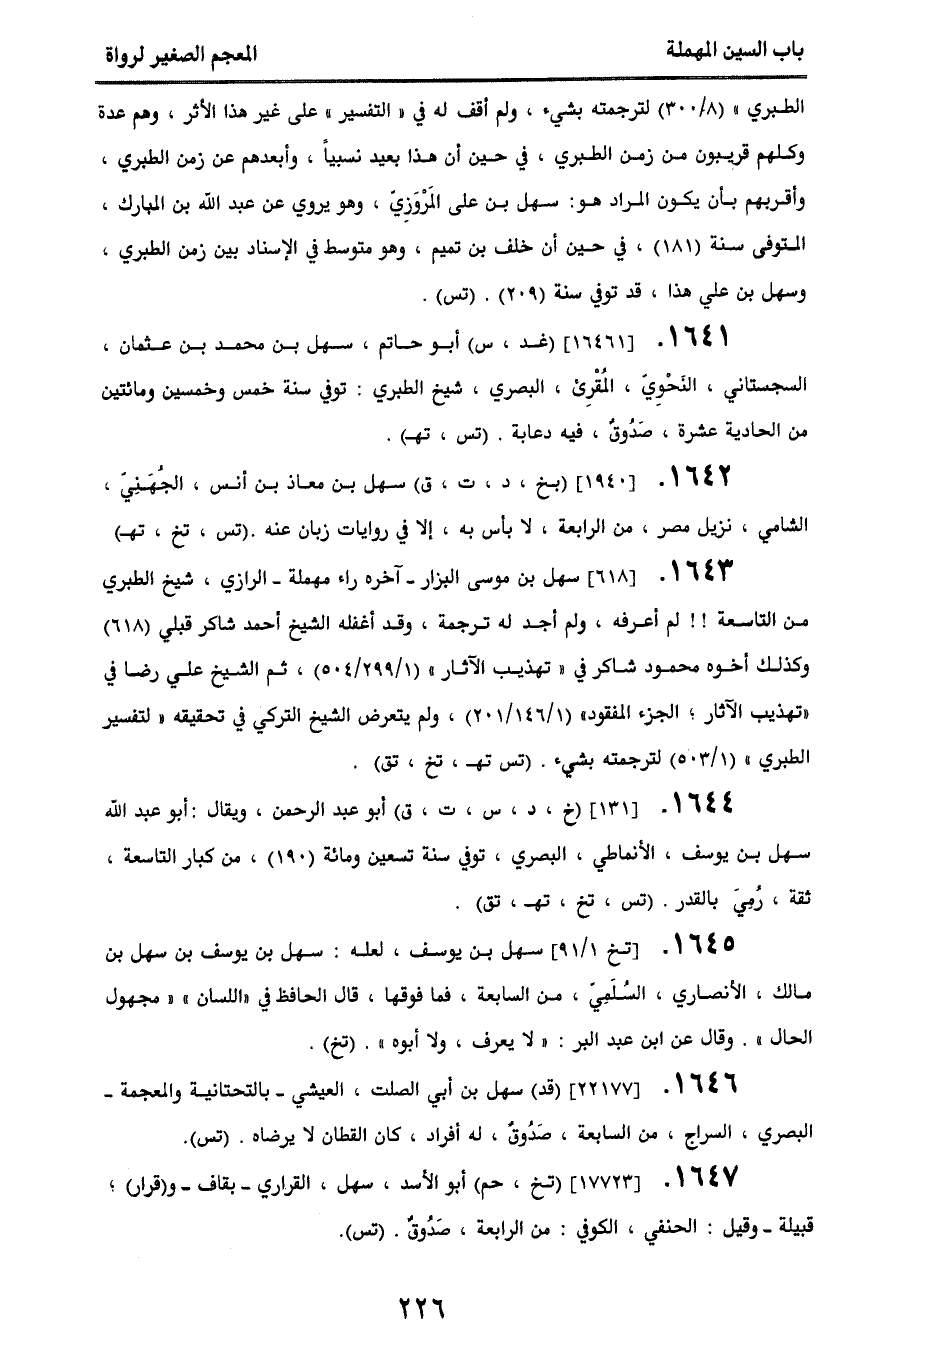 باب السين المهملة
المعجم الصغير لرواة
الطبري » (٣٠٠/٨) لترجمته بشيء ، ولم أقف له في « التفسير » على غير هذا الأثر ، وهم عدة
وكلهم قريبون من زمن الطبري ، في حين أن هذا بعيد نسبياً ، وأبعدهم عن زمن الطبري ،
وأقربهم بأن يكون المراد هو: سهل بن على المَرْوَزِيّ ، وهو يروي عن عبد الله بن المبارك ،
المتوفى سنة (١٨١) ، في حين أن خلف بن تميم ، وهو متوسط في الإسناد بين زمن الطبري ،
وسهل بن علي هذا ، قد توفي سنة (٢٠٩) . (تس) .
١٦٤١. [١٦٤٦١] (غد ، س) أبو حاتم ، سهل بن محمد بن عثمان ،
السجستاني ، النَحْوِيّ ، المُقْرِئ ، البصري ، شيخ الطبري : توفي سنة خمس وخمسين ومائتين
من الحادية عشرة ، صَدُوقٌ ، فيه دعابة . (تس ، تهـ) .
١٦٤٢. [١٩٤٠] (بخ ، د ، ت ، ق) سهل بن معاذ بن أنس ، الجُهَنِيّ ،
الشامي ، نزيل مصر ، من الرابعة ، لا بأس به ، إلا في روايات زبان عنه .(تس ، تخ ، تهـ)
١٦٤٣. [٦١٨] سهل بن موسى البزار ـ آخره راء مهملة ـ الرازي ، شيخ الطبري
من التاسعة !! لم أعرفه ، ولم أجد له ترجمة ، وقد أغفله الشيخ أحمد شاكر قبلي (٦١٨)
وكذلك أخوه محمود شاكر في « تهذيب الآثار » (٥٠٤/٢٩٩/١) ، ثم الشيخ علي رضا في
«تهذيب الآثار ؛ الجزء المفقود» (٢٠١/١٤٦/١) ، ولم يتعرض الشيخ التركي في تحقيقه « لتفسير
الطبري » (٥٠٣/١) لترجمته بشيء . (تس تهـ ، تخ ، تق) .
١٦٤٤. [١٣١] (خ ، د ، س ، ت ، ق) أبو عبد الرحمن ، ويقال :أبو عبد الله
سهل بن يوسف ، الأنماطي ، البصري ، توفي سنة تسعين ومائة (١٩٠) ، من كبار التاسعة ،
ثقة ، رُمِيَ بالقدر . (تس ، تخ ، تهـ ، تق) .
١٦٤٥. [تخ ٩١/١] سهل بن يوسف ، لعله : سهل بن يوسف بن سهل بن
مالك ، الأنصاري ، السُلَمِيّ ، من السابعة ، فما فوقها ، قال الحافظ في «اللسان » « مجهول
الحال » . وقال عن ابن عبد البر : « لا يعرف ، ولا أبوه » . (تخ) .
١٦٤٦. [٢٢١٧٧] (قد) سهل بن أبي الصلت ، العيشي ـ بالتحتانية والمعجمة ـ
البصري ، السراج ، من السابعة ، صَدُوقٌ ، له أفراد ، كان القطان لا يرضاه . (تس).
١٦٤٧. [١٧٧٢٣] (تخ ، حم) أبو الأسد ، سهل ، القراري ـ بقاف ـ و(قرار) ؛
قبيلة ـ وقيل : الحنفي ، الكوفي : من الرابعة ، صَدُوقٌ . (تس).
٢٢٦